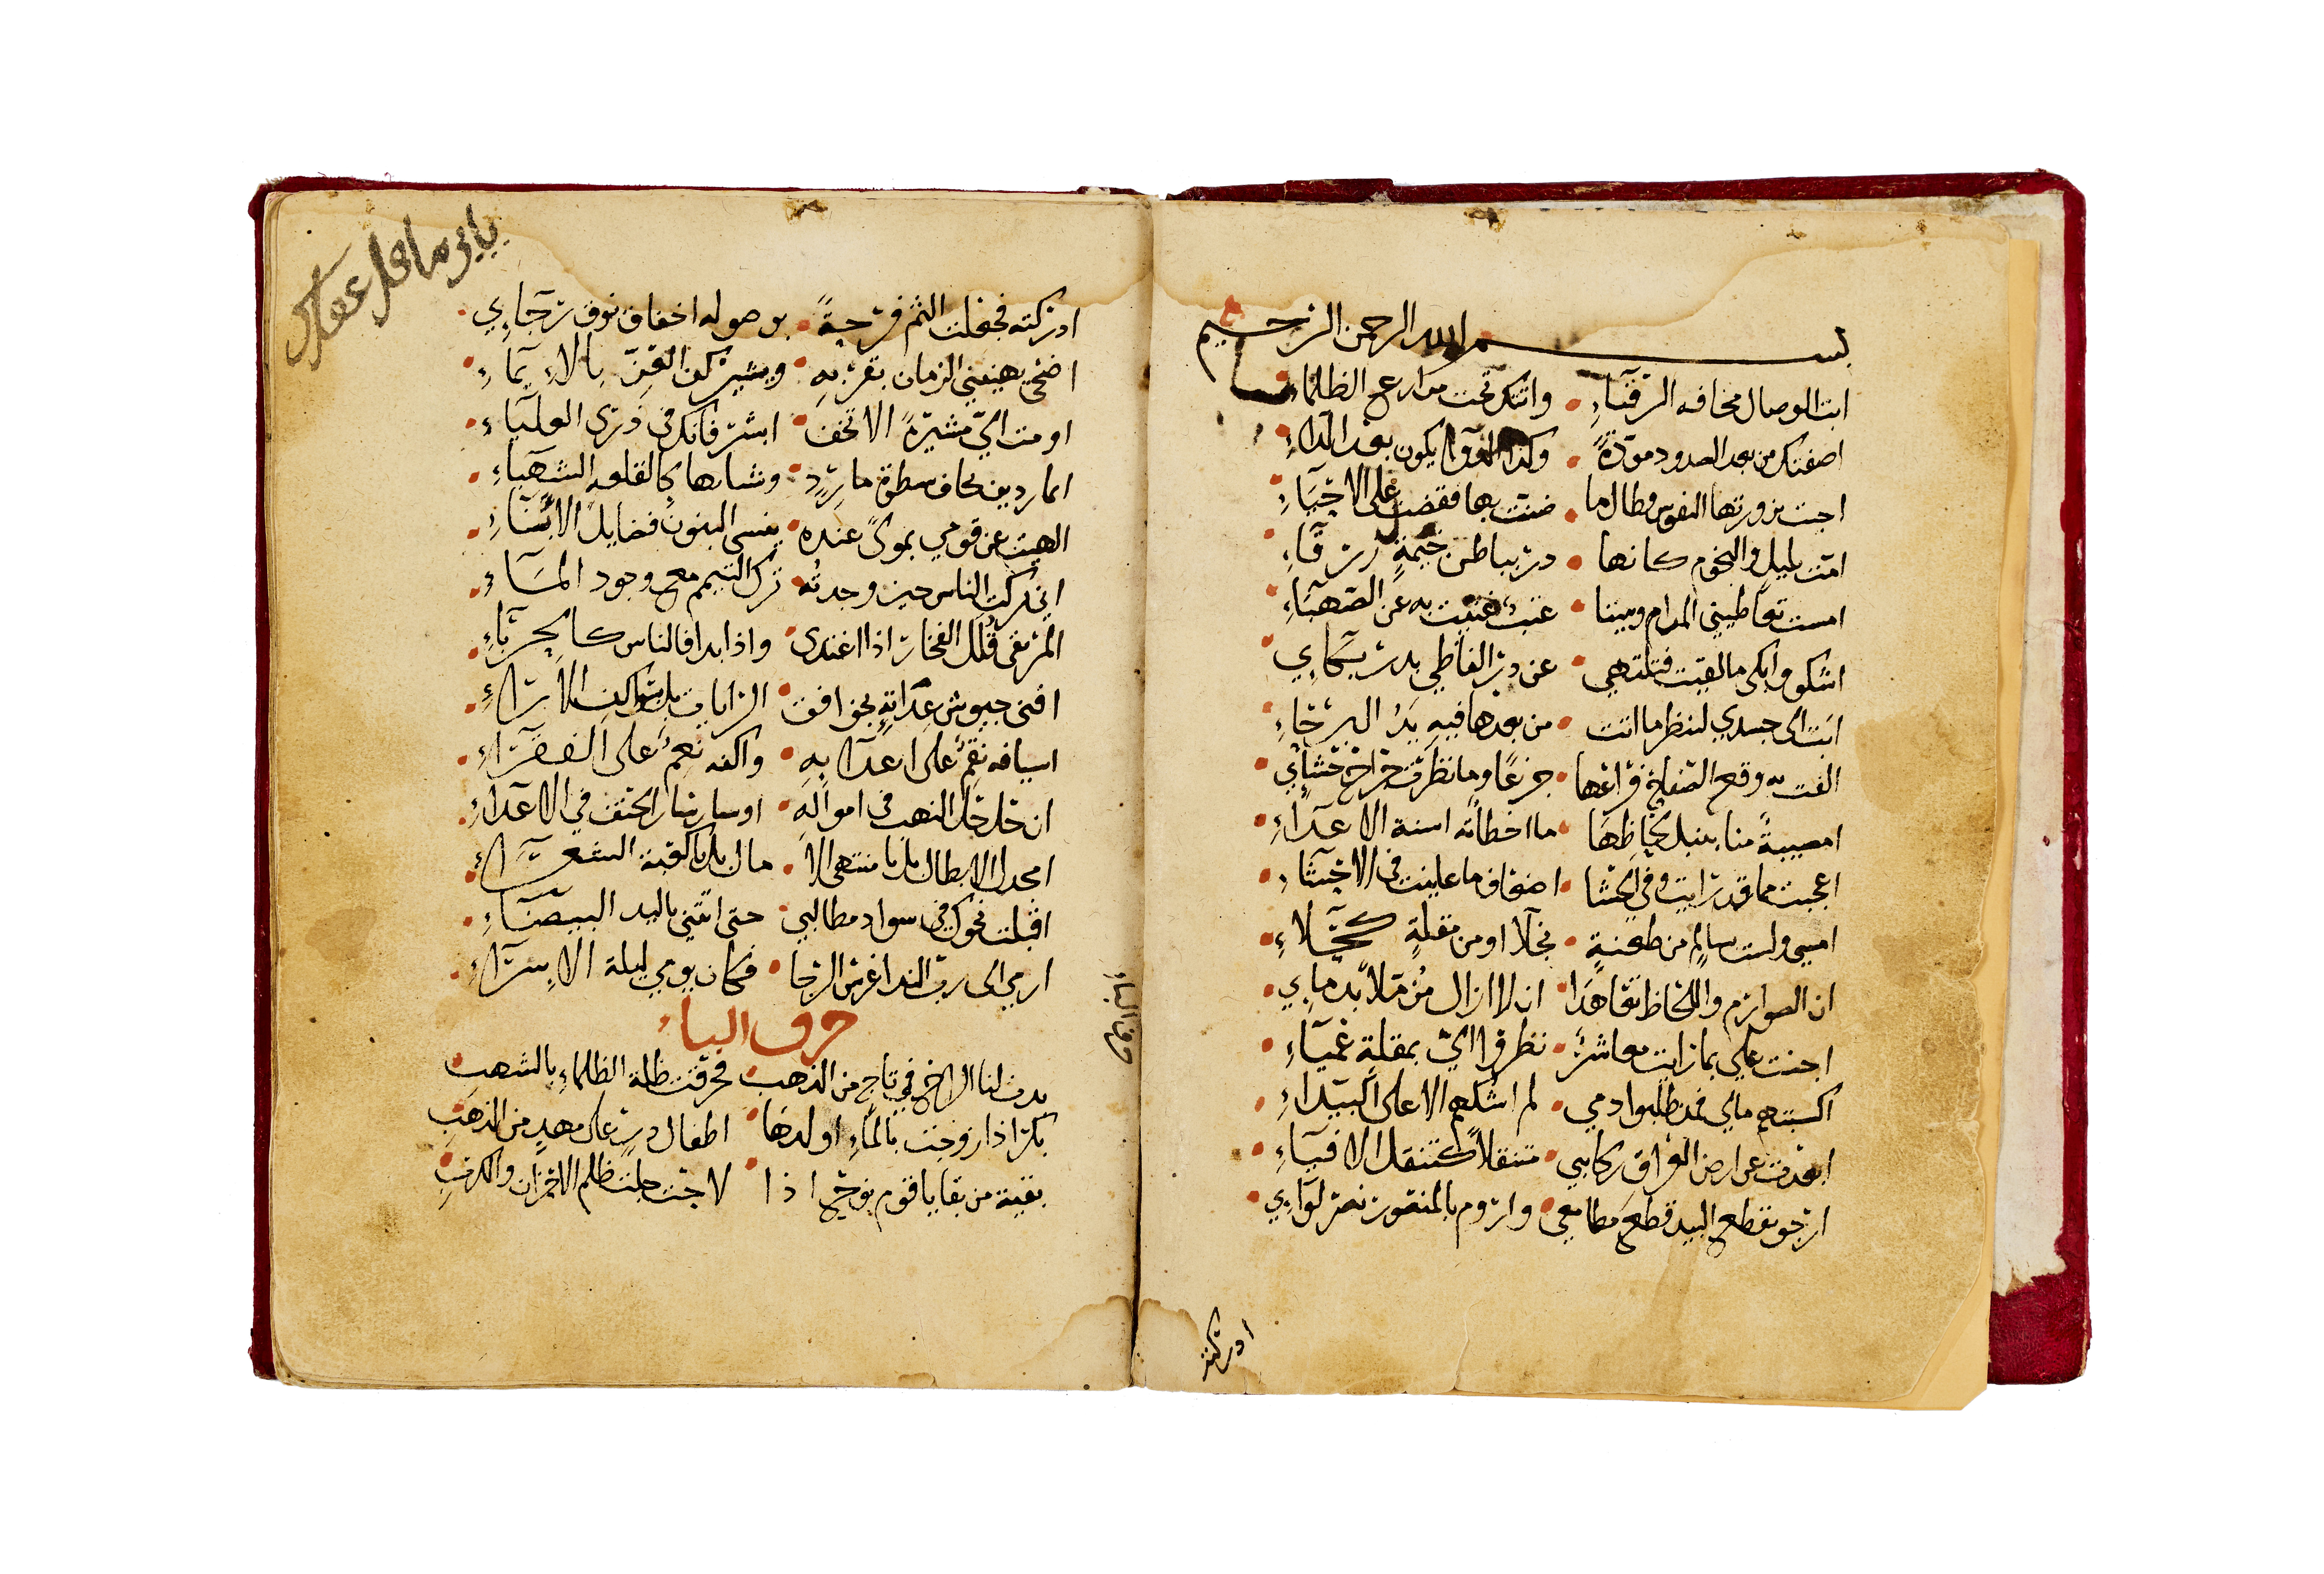 بسم الله الرحمن الرحيم
ابت الوصال مخافه الرقباء • واتتك تحت مدارع الظلماء
اصفتك من بعد الصدود مودة • وكذا الدوآ يكون بعد الداء
احيت بزورتها النفوس وطال ما • ضنت بها فقضت على الاحياء
امت بليل والنجوم كانها • در بباطن خيمة زرقاء
امست تعاطيني المدام وبيننا • عتب غنيت به عن الصهباء
اشكو وابكي ما لقيت فتلتهي • عن در الفاظي بدر بكاي
ابت الى جسدي لتنظر ما انتهت • من بعدها فيه يد البرحاء
الفت به وقع الصفاح فراعها • جزعا وما نظرت جراح حشاي
امصيبة منا بنبل لحاظها • ما اخطاته اسنة الاعداء
اعجبت مما قد رايت وفي الحشا • اضعاف ما عاينت في الاحشاء
امسي ولست بسالم من طعنة • نجلاء او من مقلة كحلاء
ان الصوارم واللحاظ تعاهدا • ان لا ازال مزملا بدماي
اجنت علي بما رايت معاشر • نظروا الي بمقلة عمياء
اكسبتهم مالي فمذ طلبوا دمي • لم اشكهم الا على البيداء
ابعدت عن ارض العراق ركايبي • متنقلا كتنقل الافياء
ارجو بقطع البيد قطع مطامعي • واروم بالمنصور نصر لواي
ادركته
ادركته فجعلت الثم فرحة • بوصوله اخفاف نوق رجاي
اضحى يهنيني الزمان بقربه • ويشير كف العز بالايماء
اومت الي مشيرة الا تخف • ابشر فانك في ذرى العلياء
الهيت عن قومي بموك عنده • ينسى البنون فضايل الابناء
اني تركت الناس حين وجدته • ترك التيمم مع وجود الماء
المرتقى قلل الفخار اذا اغتدى • واذا بدا فالناس كالحرباء
افنى جيوش عداته بخوافق • الرايات بل بثواكب الاراء
اسيافه نقم على اعدايه • واكفه نعم على الفقراء
ان حل حل النهب في امواله • او سار سار الحتف في الاعداء
امجدل الابطال بل يا منتهى الا • مال بل يا كعبة الشعراء
اقبلت نحوك في سواد مطالبي • حتى اتتني باليد البيضاء
ارمي الى رب الندا غرض الرجا • فكان يومي ليلة الاسراء
حرف الباء
بدت لنا الراح في تاج من الذهب • فمزقت ظلة الظلماء بالشهب
بكر اذا زوجت بالماء اولدها • اطفال در على مهد من الذهب
بقية من بقايا قوم نوح اذا • لاحت جلت ظلم الاحزان والكرب
حرف الباء